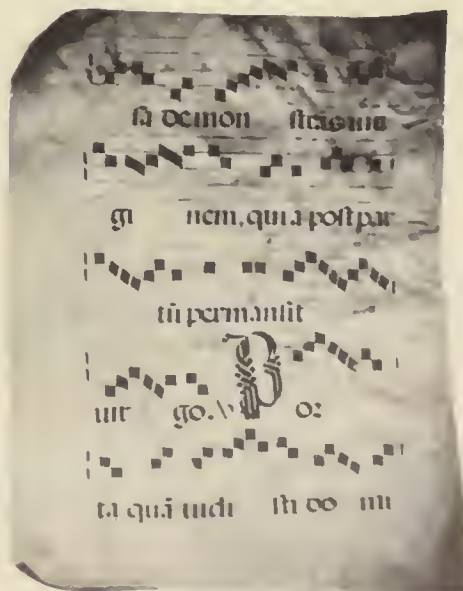 sa demon stras uir
gi nem, quia post par
tũ permansit
uir go. V Por
ta quã uidi sti do mi